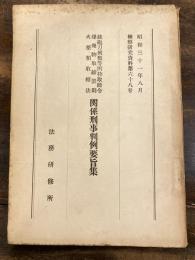 昭和三十一年八月
検察研究資料第六十八号
銃砲刀剣類等所持取締令
爆発物取締罰則
火薬類取締法
関係刑事判例要旨集
法務研修所